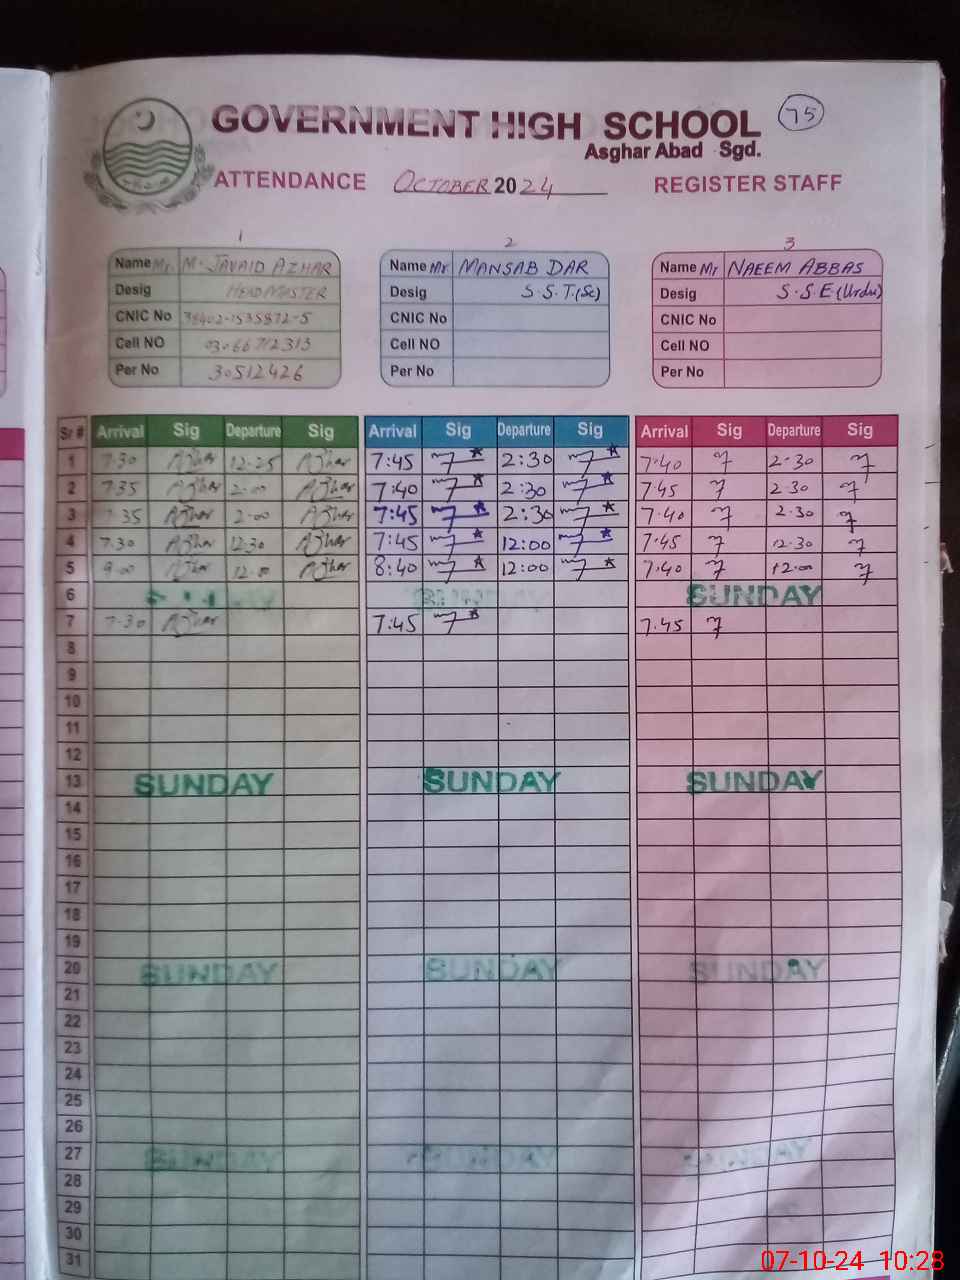 GOVERNMENT HIGH SCHOOL 75
Asghar Abad Sgd.
ATTENDANCE OCTOBER 2024 REGISTER STAFF
1 2 3
Name Mr. M. JAVAID AZHAR Name Mr MANSAB DAR Name Mr NAEEM ABBAS
Desig HEADMASTER Desig S.S.T.(Sc) Desig S.S.E(Urdu)
CNIC No 38402-1535872-5 CNIC No CNIC No
Cell NO 03066712313 Cell NO Cell NO
Per No 30512426 Per No Per No
Sr # Arrival Sig Departure Sig Arrival Sig Departure Sig Arrival Sig Departure Sig
1 7.30 Azhar 12.25 Azhar 7:45 2:30 7.40 2.30
2 7.35 Azhar 2.00 Azhar 7:40 2:30 7.45 2.30
3 7.35 Azhar 2.00 Azhar 7:45 2:30 7.40 2.30
4 7.30 Azhar 12.30 Azhar 7:45 12:00 7.45 12.30
5 9.00 Azhar 12.00 Azhar 8:40 12:00 7.40 12.00
6 SUNDAY
7 7.30 Azhar 7:45 7.45
8
9
10
11
12
13 SUNDAY SUNDAY SUNDAY
14
15
16
17
18
19
20 SUNDAY SUNDAY SUNDAY
21
22
23
24
25
26
27 SUNDAY SUNDAY SUNDAY
28
29
30
31
07-10-24 10:28